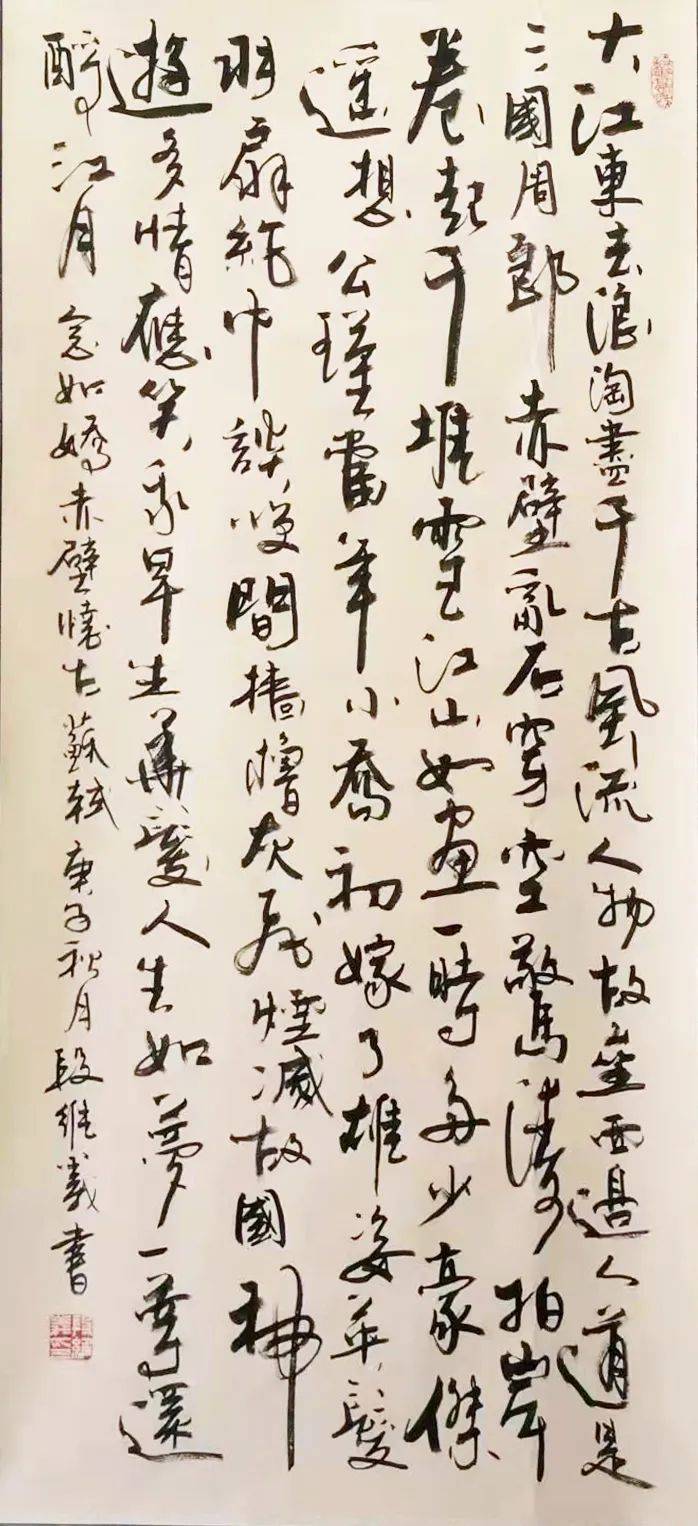 大江東去浪淘盡千古風流人物故壘西邊人道是
三國周郎赤壁亂石穿空驚濤拍岸
卷起千堆雪江山如畫一時多少豪傑
遙想公瑾當年小喬初嫁了雄姿英髮
羽扇綸巾談笑間檣櫓灰飛煙滅故國神
遊多情應笑我早生華髮人生如夢一尊還
酹江月 念奴嬌赤壁懷古蘇軾 庚子秋月段維義書